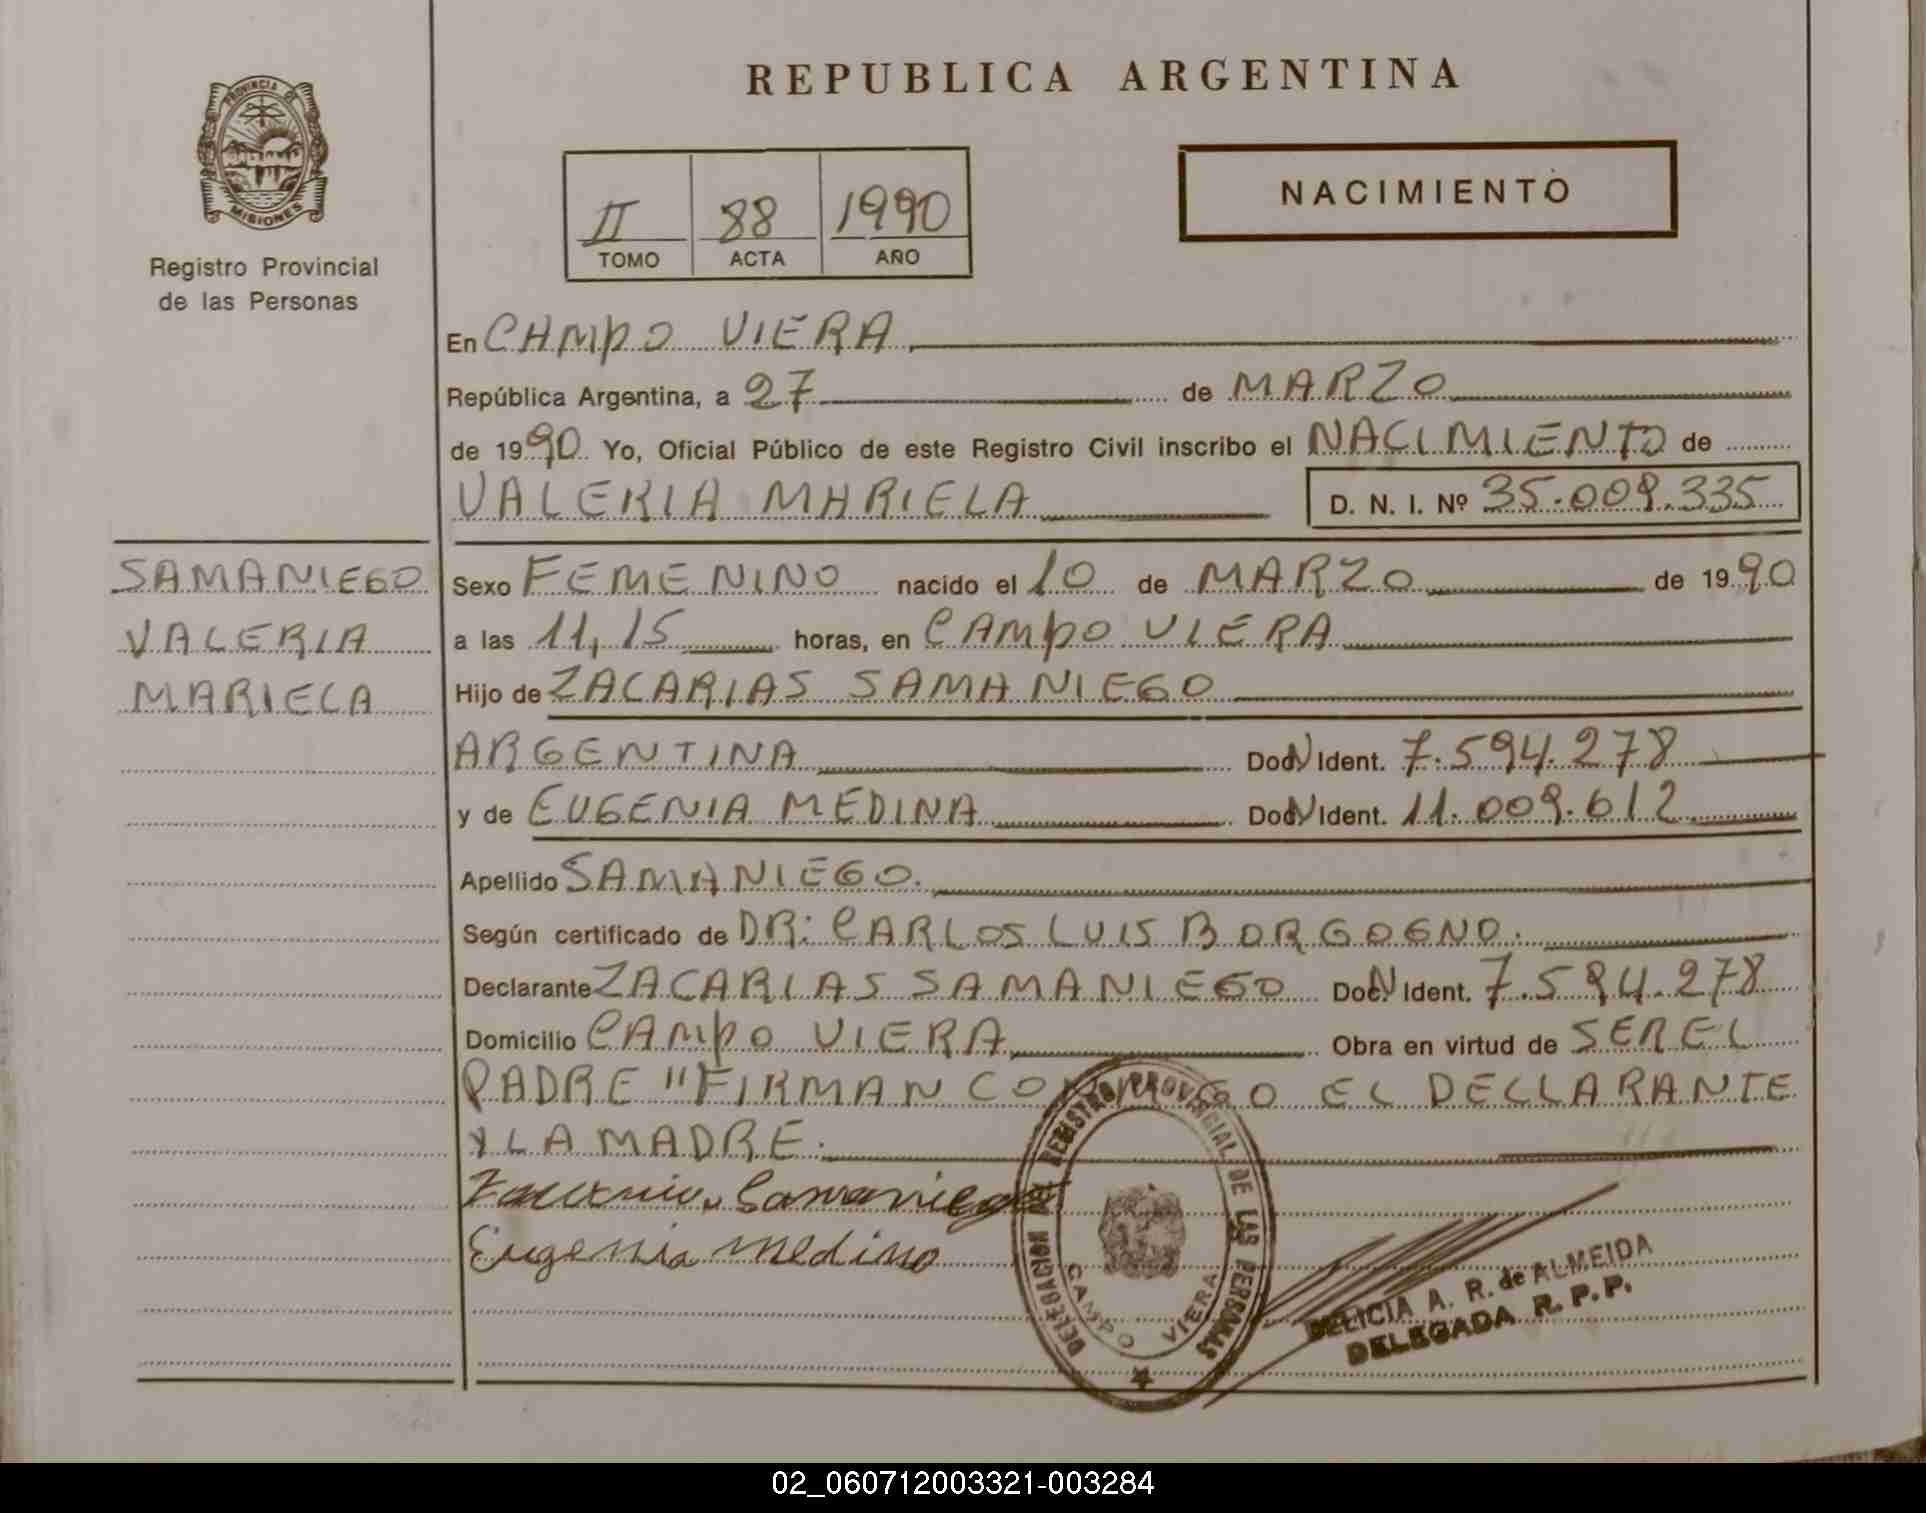 REPUBLICA ARGENTINA
PROVINCIA DE
MISIONES
Registro Provincial
de las Personas
II 88 1990
TOMO ACTA AÑO
NACIMIENTO
En CAMPO VIERA
República Argentina, a 27 de MARZO
de 1990 Yo, Oficial Público de este Registro Civil inscribo el NACIMIENTO de
VALERIA MARIELA D. N. I. Nº 35.009.335
SAMANIEGO
VALERIA
MARIELA
Sexo FEMENINO nacido el 10 de MARZO de 1990
a las 11,15 horas, en CAMPO VIERA
Hijo de ZACARIAS SAMANIEGO
ARGENTINA Doc. N Ident. 7.594.278
y de EUGENIA MEDINA Doc. N Ident. 11.009.612
Apellido SAMANIEGO.
Según certificado de DR: CARLOS LUIS BORGOGNO.
Declarante ZACARIAS SAMANIEGO Doc. N Ident. 7.594.278
Domicilio CAMPO VIERA Obra en virtud de SER EL
PADRE "FIRMAN CONMIGO EL DECLARANTE
Y LA MADRE.
Samaniego
Eugenia Medina
DELEGACION DEL REGISTRO PROVINCIAL DE LAS PERSONAS
CAMPO VIERA
DELICIA A. R. de ALMEIDA
DELEGADA R. P. P.
02_060712003321-003284